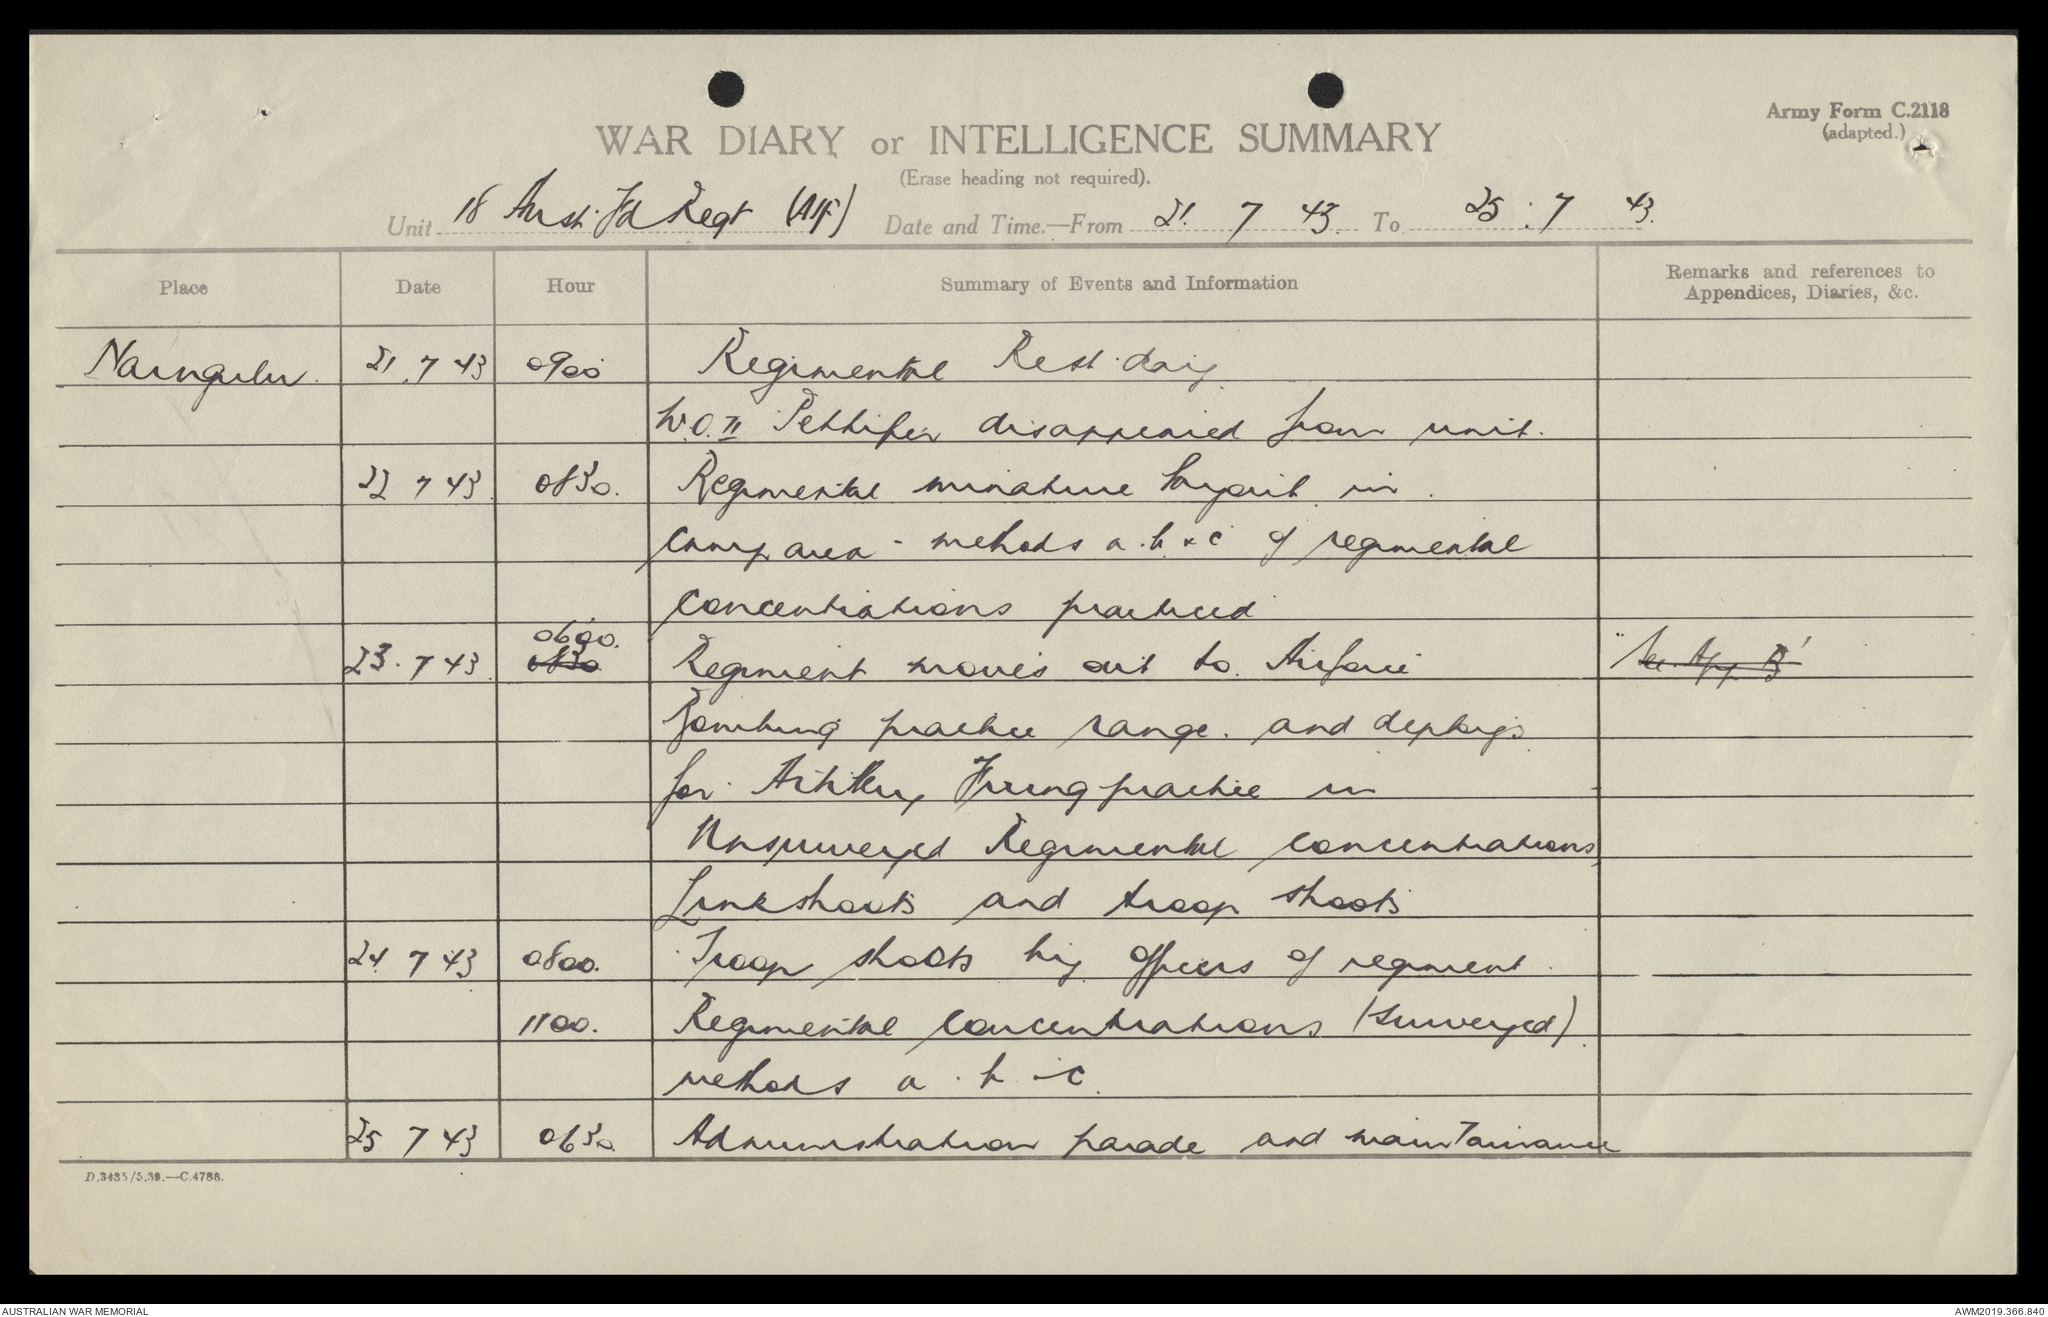 Army Form C.2118
(adapted.)
WAR DIARY or INTELLIGENCE SUMMARY
(Erase heading not required).
Unit 18 Aust. Fd Regt (AIF) Date and Time.—From 21. 7 43. To 25. 7 43.
Place Date Hour Summary of Events and Information Remarks and references to Appendices, Diaries, &c.
Narngulu. 21.7 43 0900 Regimental Rest day
W.O.II Pettifer disappeared from unit.
22 7 43. 0830. Regimental minature in
Camp area - methods a.b & c of regimental
concentrations practiced
0600.
23.7 43. 0830 Regiment moves out to Airforce See App B
Bombing practice range. and deploys
for Artillery Firing practice in
Unsurveyed Regimental concentrations
Link shoots and troop shoots
24 7 43 0800. Troop shoots by officers of regiment.
1100. Regimental concentrations (surveyed)
methods a. b - c.
25 7 43 0630. Administration parade and maintainance
D.3435/5.39.—C.4786.
AUSTRALIAN WAR MEMORIAL AWM2019.366.840